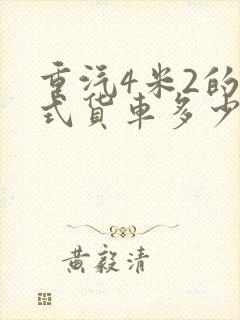 重汽4米2的
式货车多少
黄毅清